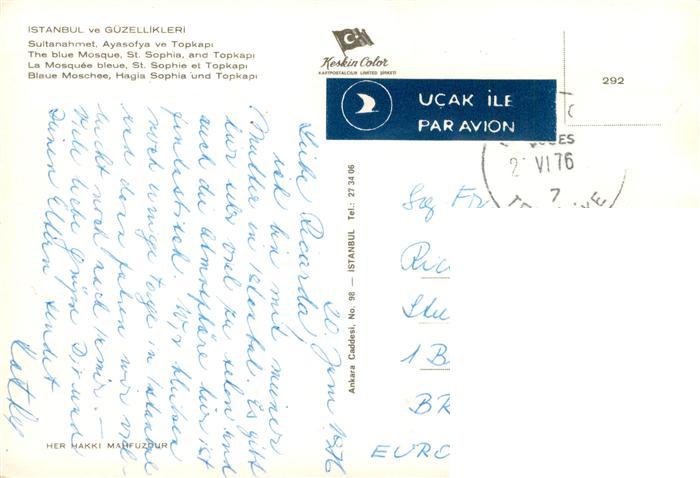 İSTANBUL ve GÜZELLİKLERİ
Sultanahmet, Ayasofya ve Topkapı
The blue Mosque, St. Sophia, and Topkapı
La Mosquée bleue, St. Sophie et Topkapı
Blaue Moschee, Hagia Sophia und Topkapı
Keskin Color
KARTPOSTALCILIK LIMITED ŞİRKETİ
UÇAK İLE
PAR AVION
292
VI 76
7
20. Juni 1976
Liebe Ricarda,
ich bin mit meiner
Mutter in Istanbul. Es gibt
hier sehr viel zu sehen und
auch die Atmosphäre hier ist
fantastisch. Wir bleiben
noch wenige Tage in Istanbul
und dann fahren wir viel-
leicht noch nach Izmir. –
Viele liebe Grüße Dir und
Deinen Eltern sendet
Ankara Caddesi, No. 98 — İSTANBUL Tel.: 27 34 06
Ric
1 B
BR
EURO
HER HAKKI MAHFUZDUR